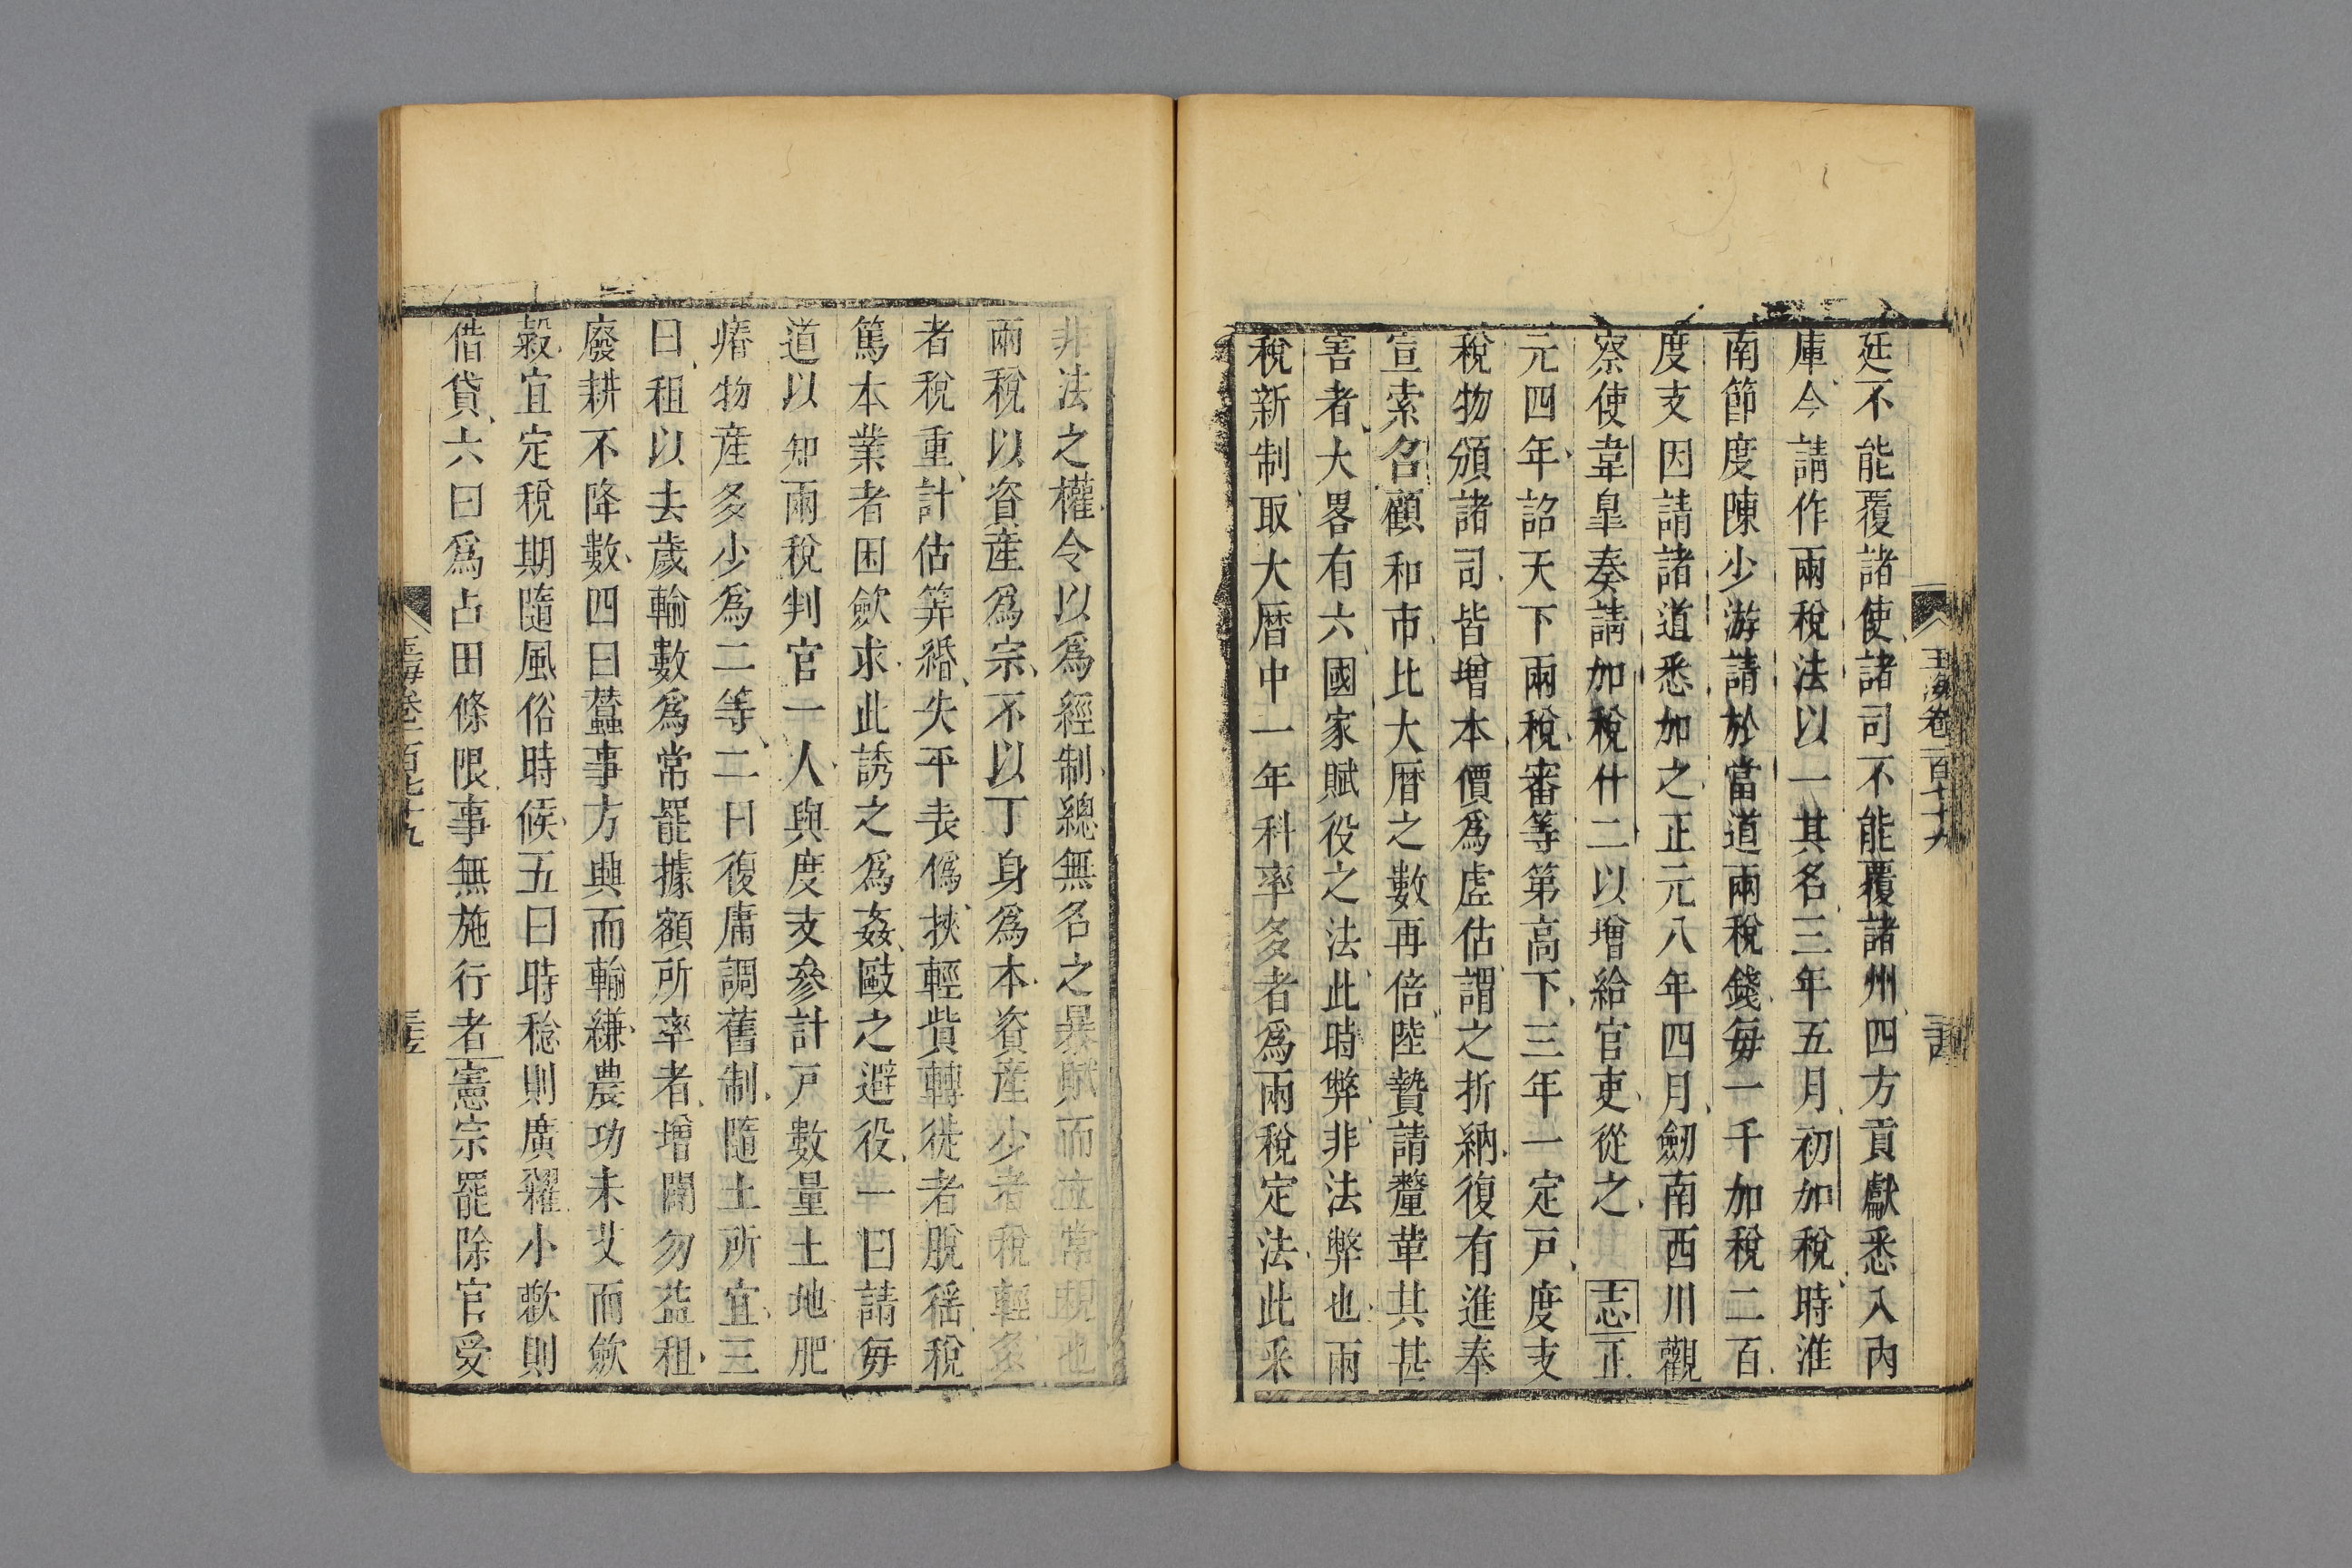 玉海卷一百七十九
廷不能覆諸使諸司不能覆諸州四方貢獻悉入內
庫今請作兩稅法以一其名三年五月初加稅時淮
南節度陳少游請於當道兩稅錢每一千加稅二百
度支因請諸道悉加之正元八年四月劒南西川觀
察使韋皐奏請加稅什二以增給官吏從之志正
元四年詔天下兩稅審等第高下三年一定戸度支
稅物頒諸司皆增本價爲虛估謂之折納復有進奉
宣索名顧和市比大曆之數再倍陸贄請釐革其甚
害者大畧有六國家賦役之法此時弊非法弊也兩
稅新制取大曆中一年科率多者爲兩稅定法此釆
非法之權令以爲經制總無名之暴賦而立常規也
兩稅以資產爲宗不以丁身爲本資產少者稅輕多
者稅重計估筭緡失平長僞挾輕貲轉徙者脫徭稅
篤本業者困歛求此誘之爲姦敺之避役一曰請每
道以知兩稅判官一人與度支參計戸數量土地肥
瘠物產多少爲二等二曰復庸調舊制隨土所宜三
曰租以去歲輸數爲常罷據額所率者增闢勿益租
廢耕不降數四曰蠶事方興而輸縑農功未艾而歛
穀宜定稅期隨風俗時候五曰時稔則廣糴小歉則
借貸六曰爲占田條限事無施行者憲宗罷除官受
玉海卷一百七十九